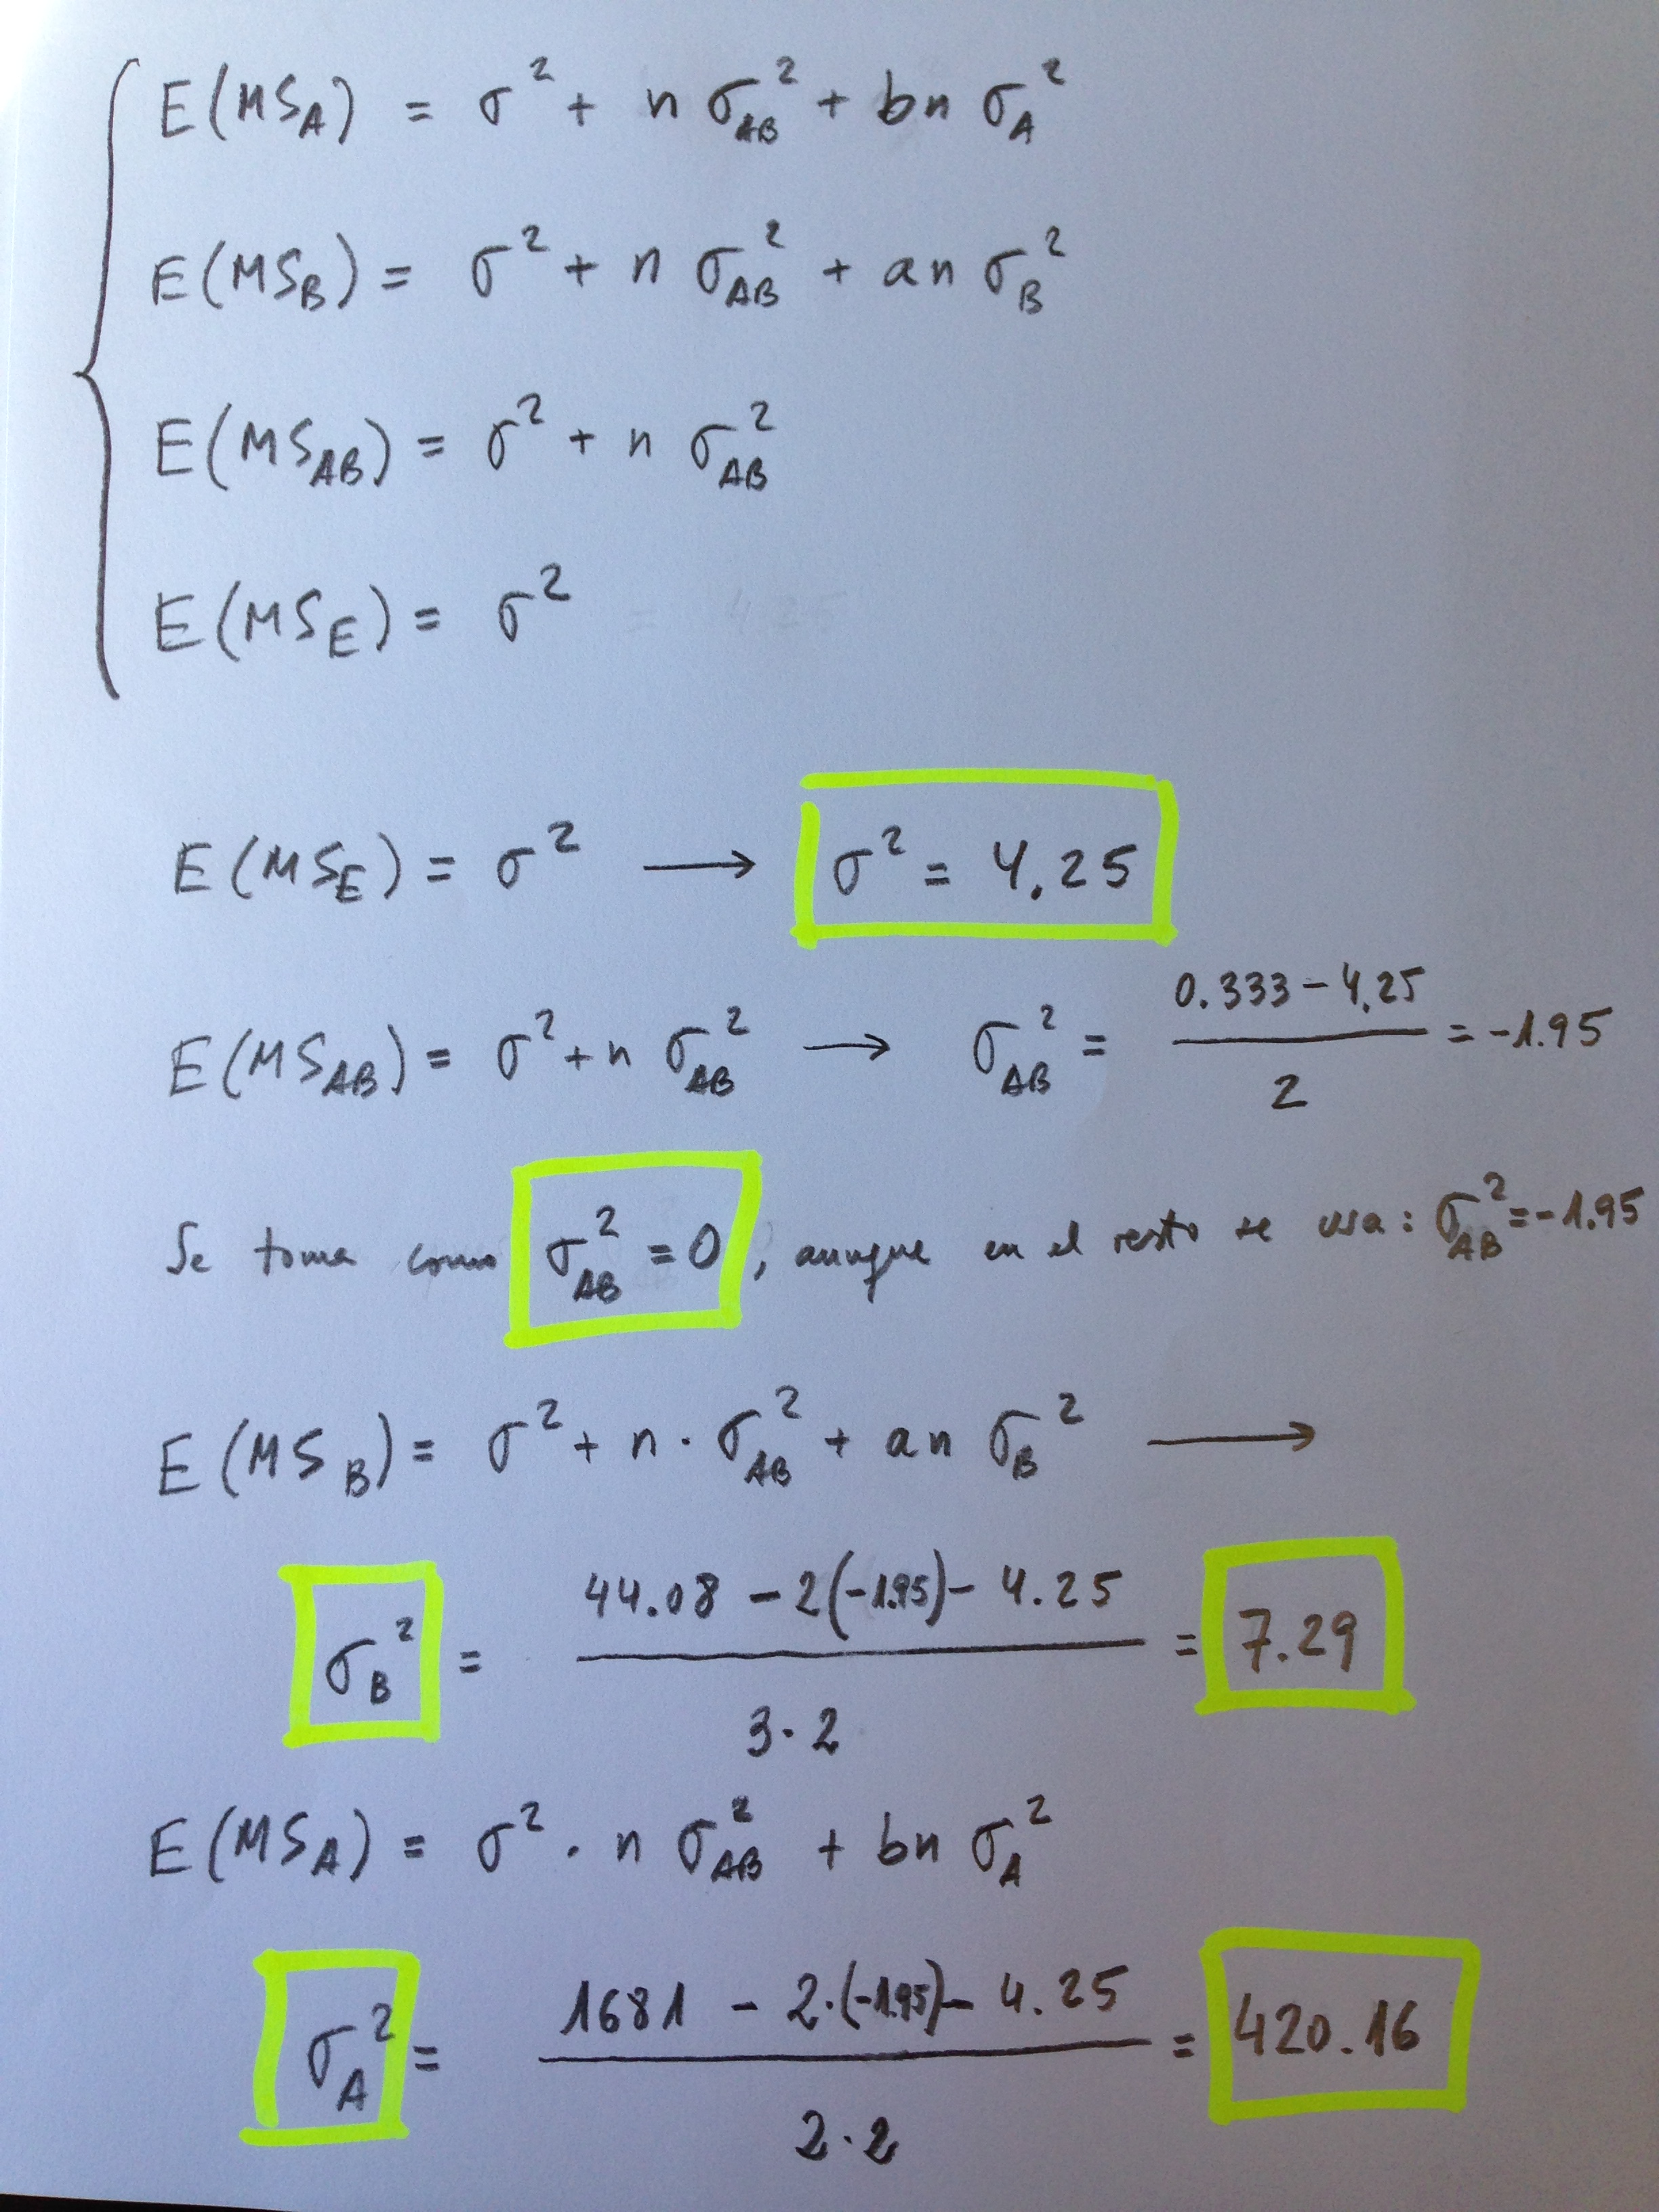 E(MS_A) = σ² + n σ_AB² + bn σ_A²
E(MS_B) = σ² + n σ_AB² + an σ_B²
E(MS_AB) = σ² + n σ_AB²
E(MS_E) = σ² = 4.25
E(MS_E) = σ² → σ² = 4.25
E(MS_AB) = σ² + n σ_AB² → σ_AB² = (0.333 - 4.25) / 2 = -1.95
Se toma como σ_AB² = 0, aunque en el resto se usa: σ_AB² = -1.95
E(MS_B) = σ² + n · σ_AB² + an σ_B² →
σ_B² = (44.08 - 2(-1.95) - 4.25) / (3·2) = 7.29
E(MS_A) = σ² · n σ_AB² + bn σ_A²
σ_A² = (1681 - 2·(-1.95) - 4.25) / (2·2) = 420.16